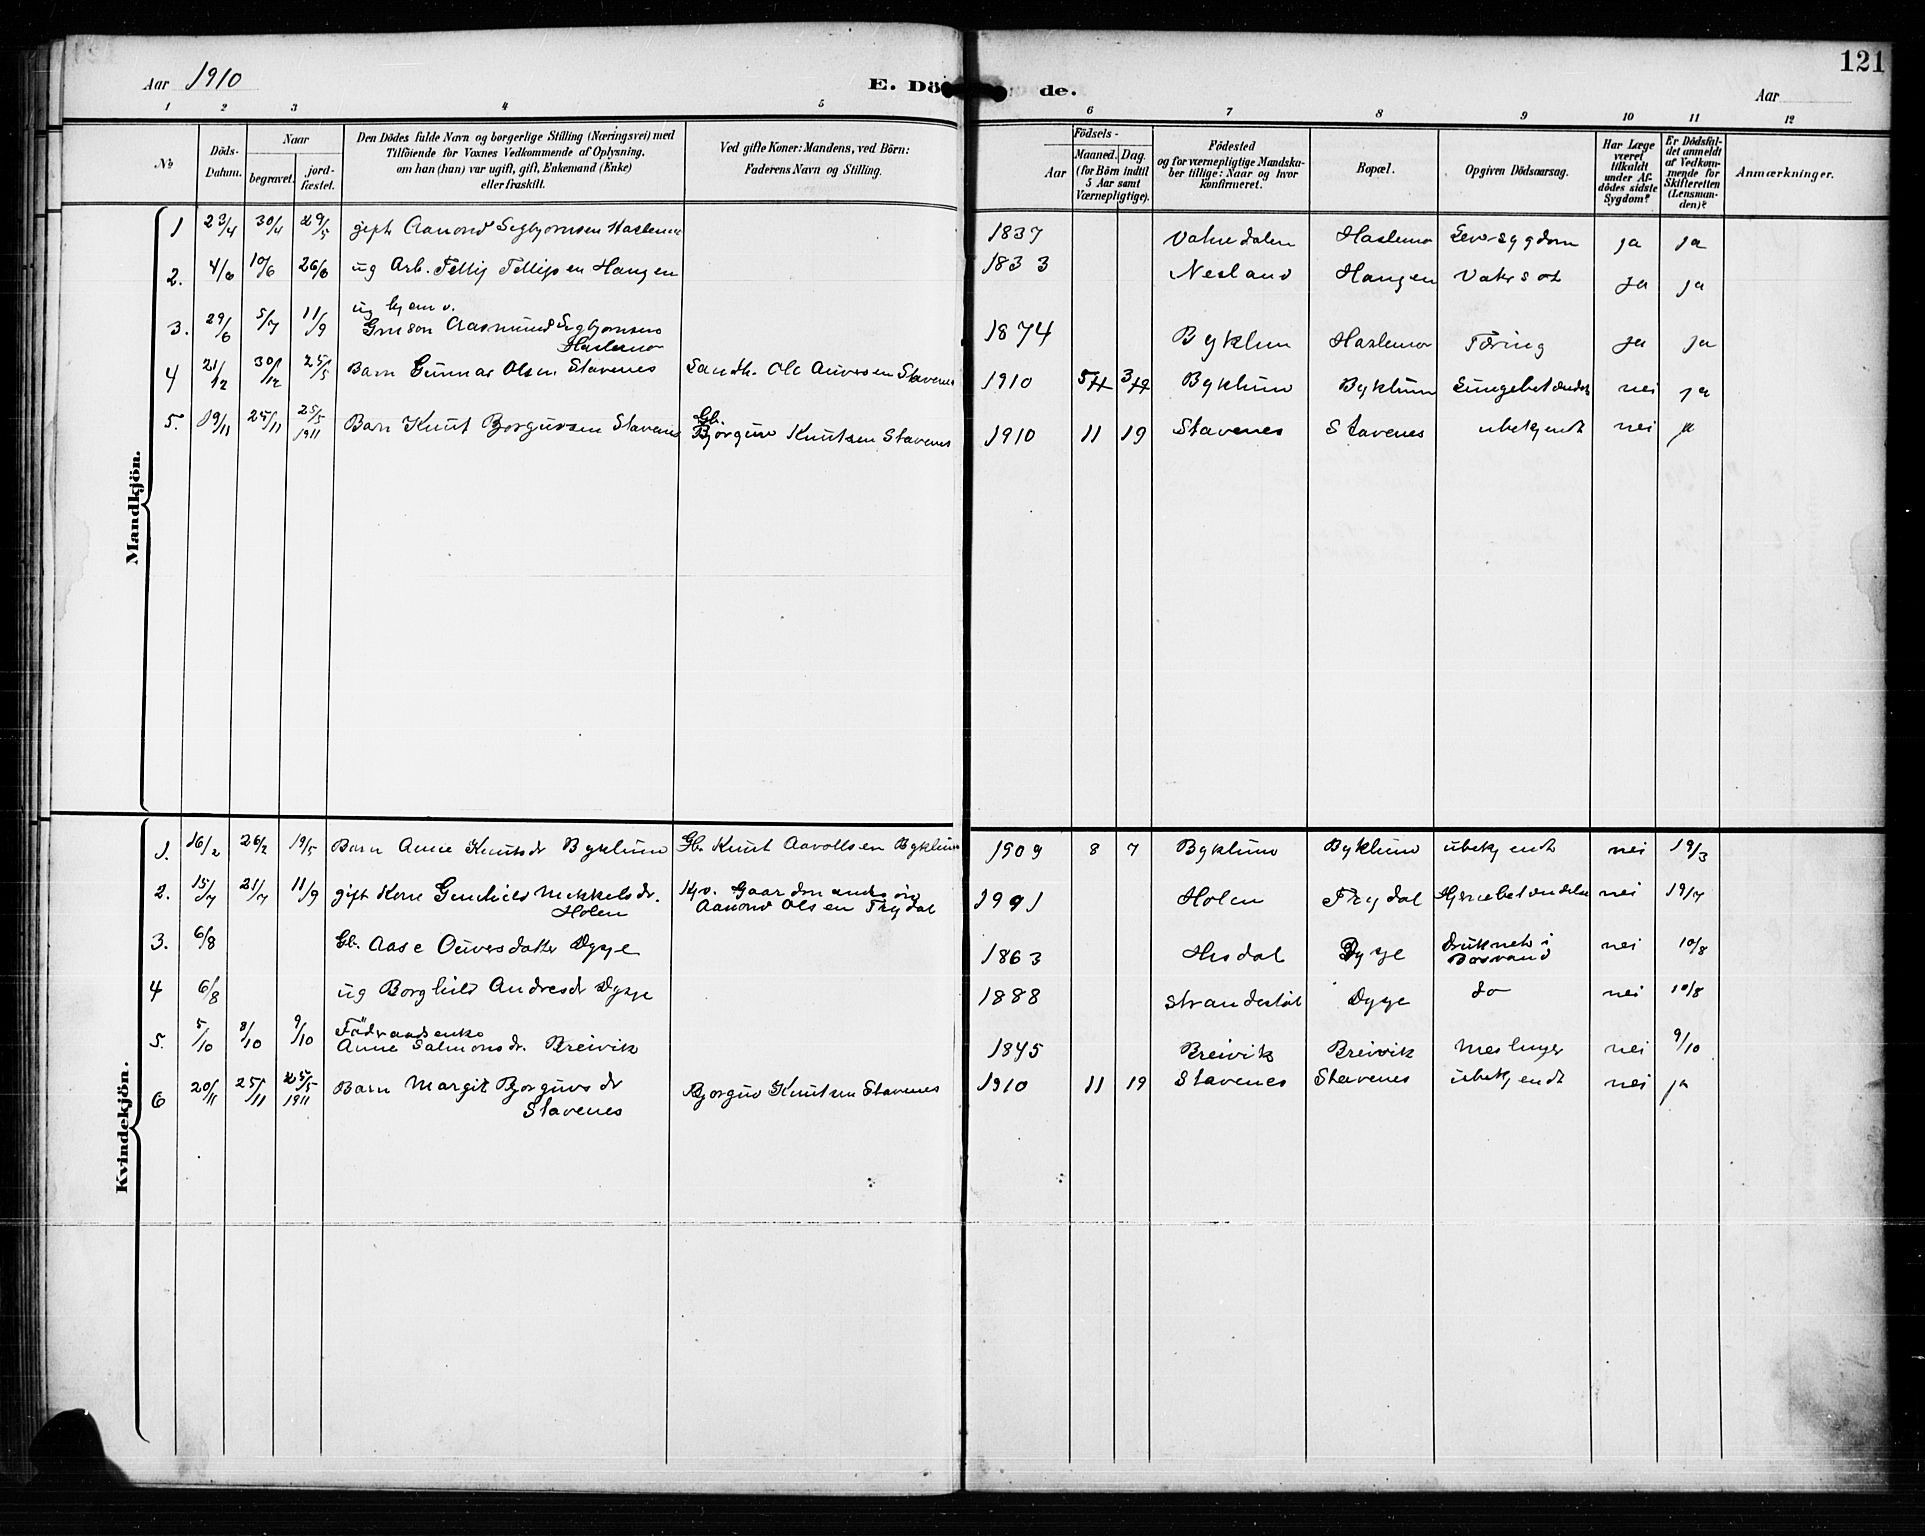 Aar 1910
E. Dö de.
121
Aar
1 2 3 4 5 6 7 8 9 10 11 12
No
Döds-Datum.
Naar
begravet.
jord-fæstet.
Den Dödes fulde Navn og borgerlige Stilling (Næringsvei) med
Tilföiende for Voxnes Vedkommende af Oplysning.
om han (hun) var ugift, gift, Enkemand (Enke)
eller fraskilt.
Ved gifte Koner: Mandens, ved Börn:
Faderens Navn og Stilling.
Födsels-
Aar
Maaned. Dag.
(for Börn indtil
5 Aar samt
Værnepligtige).
Födested
og for værnepligtige Mandska-
ber tillige: Naar og hvor
konfirmeret.
Bopæl.
Opgiven Dödsaarsag.
Har Læge
været
tilkaldt
under Af-
dödes sidste
Sygdom?
Er Dödsfal-
det anmeldt
af Vedkom-
mende for
Skifteretten
(Lensman-
den)?
Anmærkninger.
Mandkjön.
1 23/4 30/4 29/5 gift Aanond Sigbjørnsen Haslemo 1837 Vatnedalen Haslemo Leversygdom ja ja
2. 4/6 10/6 26/6 ug Arb. Fellij Fellijsen Haugen 1833 Nesland Haugen Vatersot ja ja
3. 29/6 5/7 11/9 ug hjemv.
Gmsøn Aasmund Sigbjørnsen
Haslemo 1874 Byklum Haslemo Tæring ja ja
4 21/12 30/12 25/5 Barn Gunnar Olsen Stavenes Sandh. Ole Auversen Stavenes 1910 Byklum Byklum Lungebetændels nei ja
5. 19/11 25/11 25/5 1911 Barn Knut Bjørguvsen Stavenes Gb.
Bjørguv Knutsen Stavenes 1910 11 19 Stavenes Stavenes ubekjendt nei ja
Kvindekjön.
1. 16/2 26/2 19/5 Barn Anne Knutsdr Byklum Gb. Knut Aavoldsen Byklum 1909 8 7 Byklum Byklum ubekjendt nei 19/3
2. 15/7 21/7 11/9 gift Kone Gunhild Mikkelsdr.
Holen Kjv. Gaardmandssøn
Aanond Olsen Trydal 1991 Holen Trydal Hjernebetændelse nei 19/7
3. 6/8 Gb. Aase Ouversdatter Dyge 1863 Hisdal Dyge Druknet i
Bosvand nei 10/8
4 6/8 ug Borghild Andresdr Dyge 1888 Strandestøl Dyge do nei 10/8
5. 5/10 8/10 9/10 Födraadsenke
Anne Salmonsdr. Breivik 1845 Breivik Breivik Meslinger nei 9/10
6 20/11 25/11 25/5 1911 Barn Margit Bjorguvsdr
Stavenes Bjorguv Knutsen Stavenes 1910 11 19 Stavenes Stavenes ubekjendt nei ja